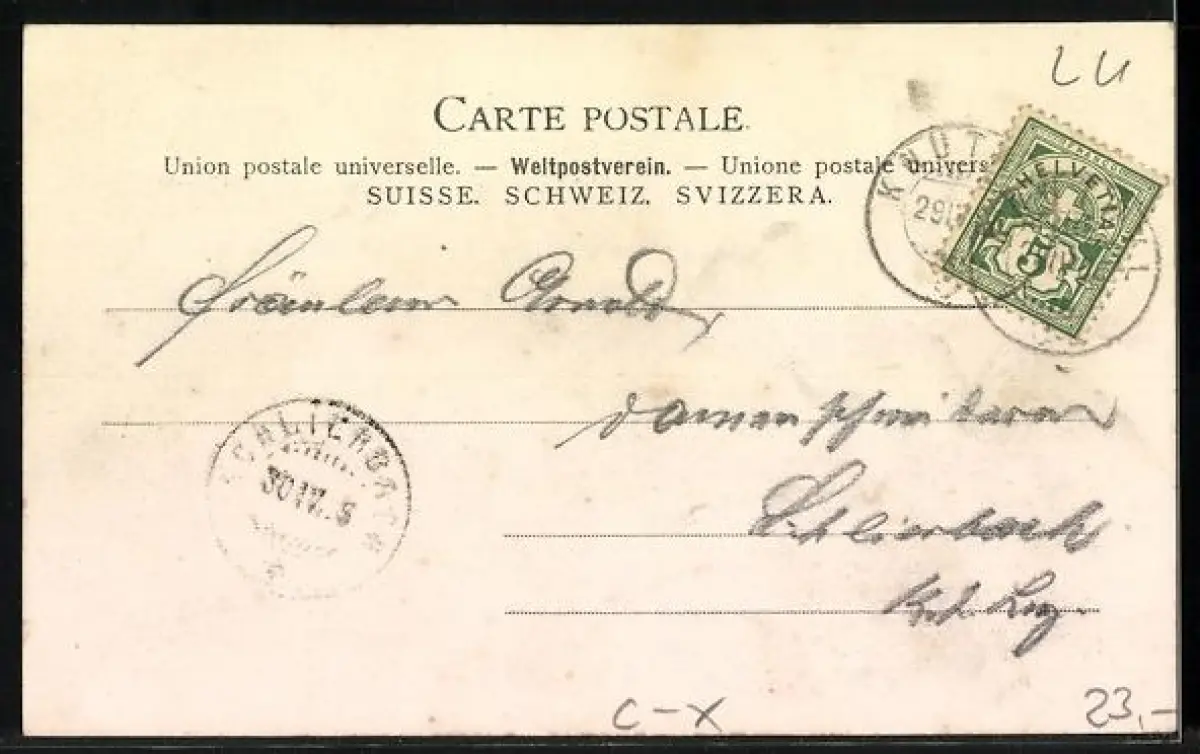 LU
CARTE POSTALE.
Union postale universelle. — Weltpostverein. — Unione postale univers
SUISSE. SCHWEIZ. SVIZZERA.
HELVETIA
5
Fräulein Arnold,
Damenschneiderin
SCHLIERBACH
30 IV. 5
Schlierbach
Kt. Luz.
C-X
23,-